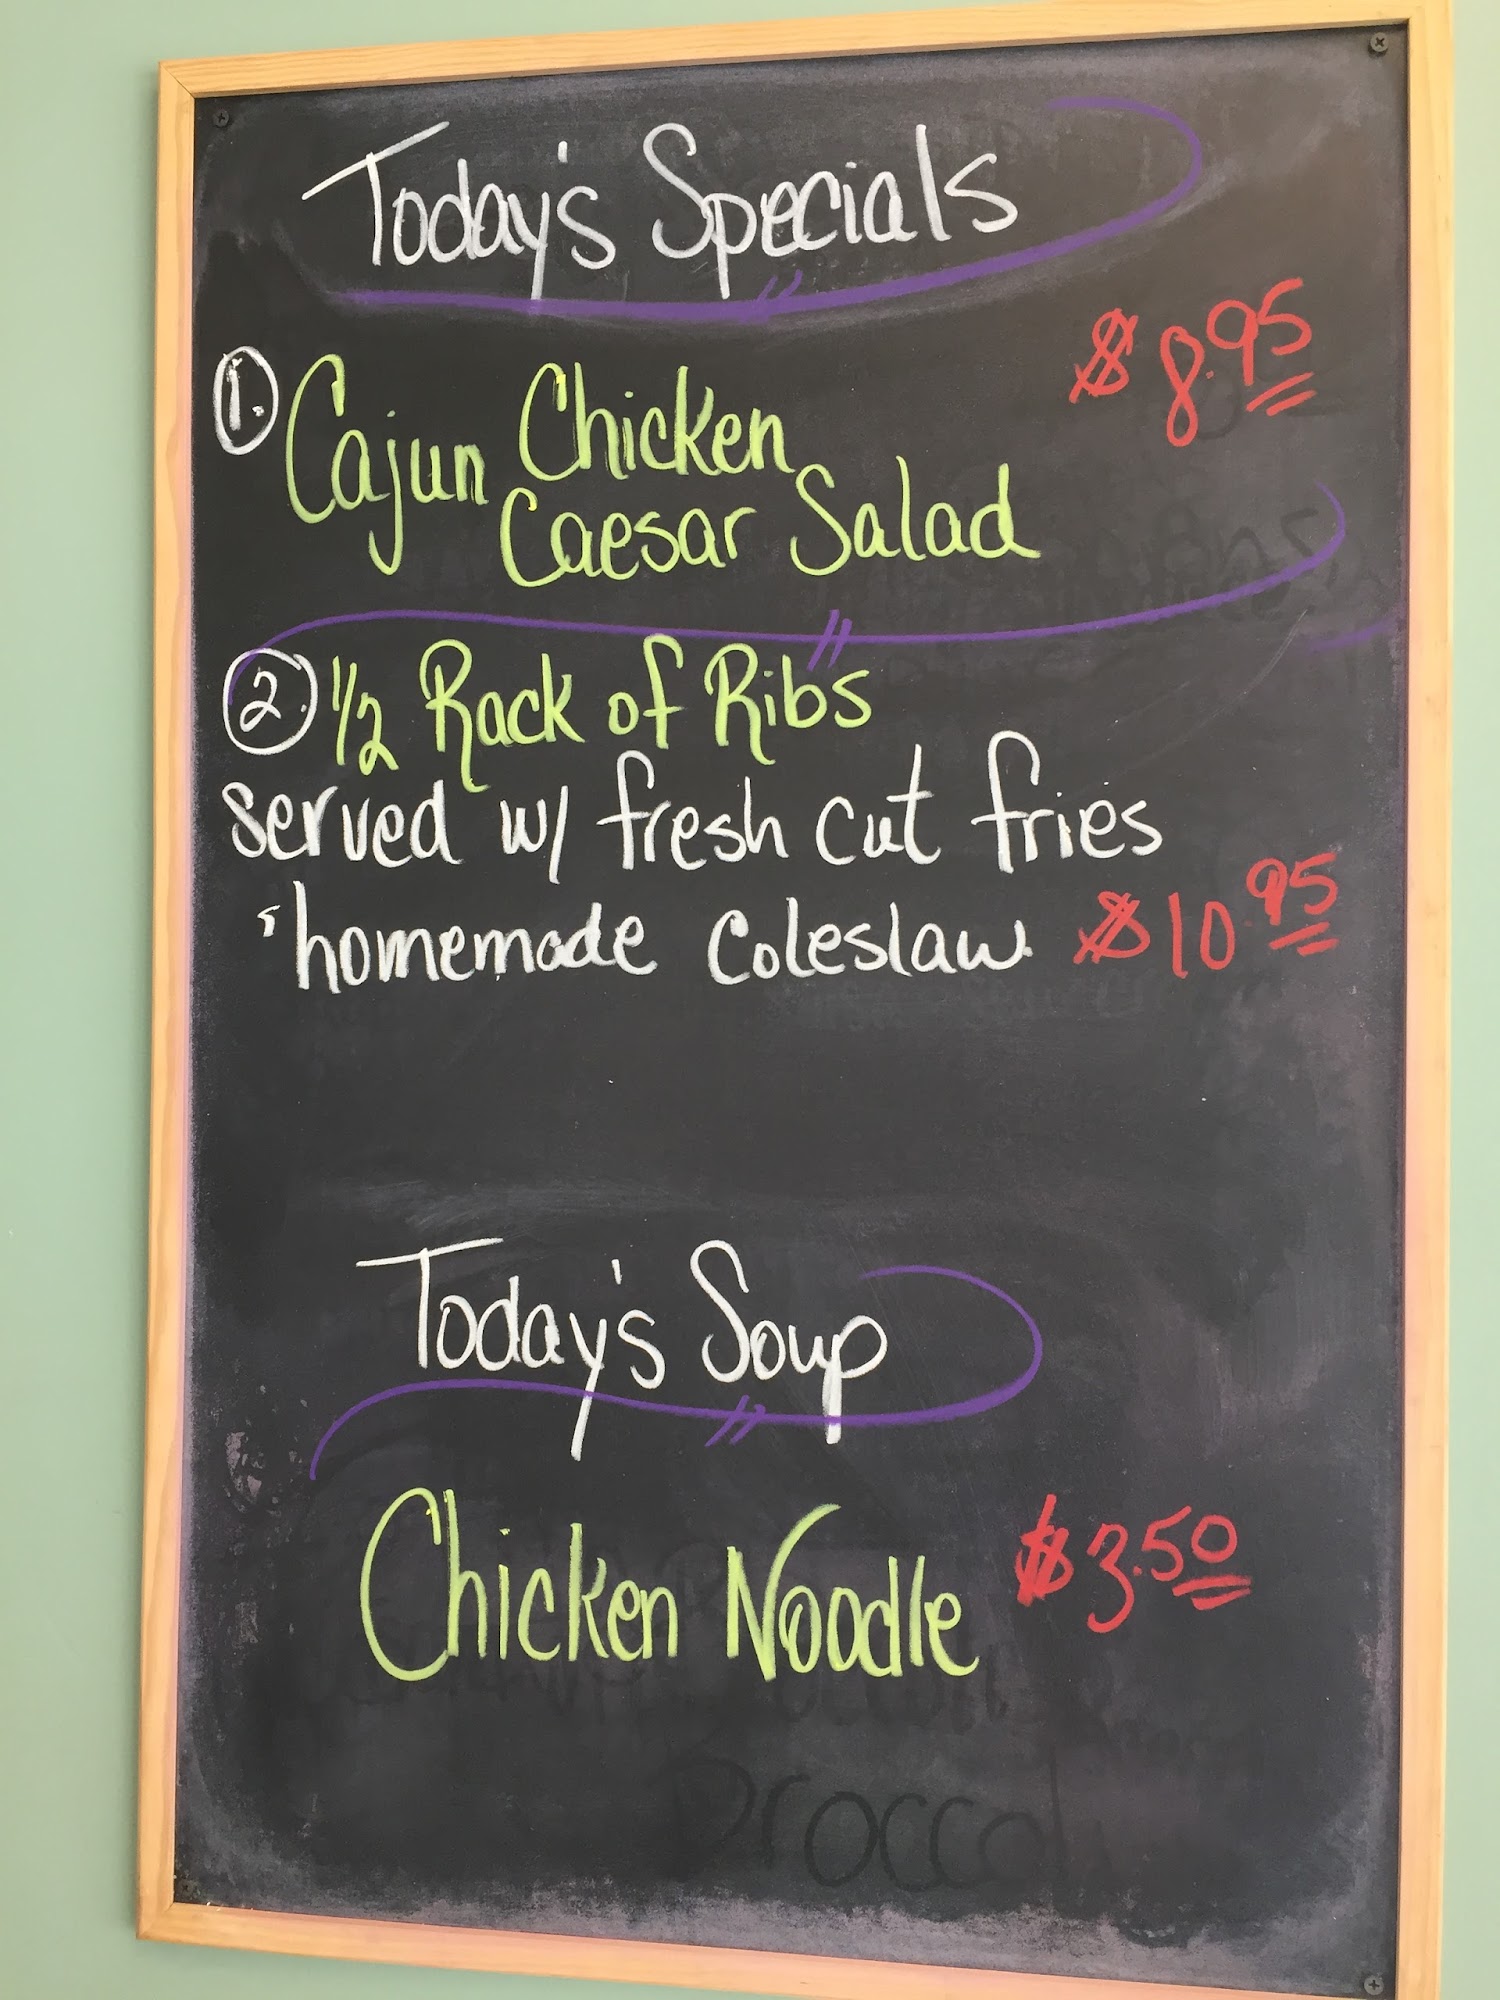 Today's Specials
1. Cajun Chicken $8.95
Caesar Salad
2. 1/2 Rack of Ribs
served w/ fresh cut fries
homemade coleslaw $10.95
Today's Soup
Chicken Noodle $3.50
Broccoli